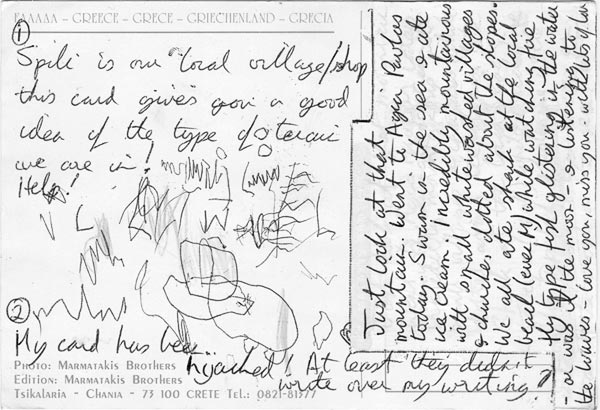 ΕΛΛΑΔΑ – GREECE – GRECE – GRIECHENLAND – GRECIA
①
Spili is our local village/shop
this card gives you a good
idea of the type of terrain
we are in!
Help!
②
My card has been
hijacked! At least they didn't
write over my writing
PHOTO: MARMATAKIS BROTHERS
EDITION: MARMATAKIS BROTHERS
TSIKALARIA – CHANIA – 73 100 CRETE TEL.: 0821-81377
Just look at that
mountain. Went to Agia Pavlos
today. Swam in the sea & ate
ice cream. Incredibly mountainous
with small whitewashed villages
& churches dotted about the slopes.
We all ate snack at the local
beach (even M) while watching
fly type fish glistening in the water
- or was it the moon - & listening to
the waves - love you, miss you - with lots of love